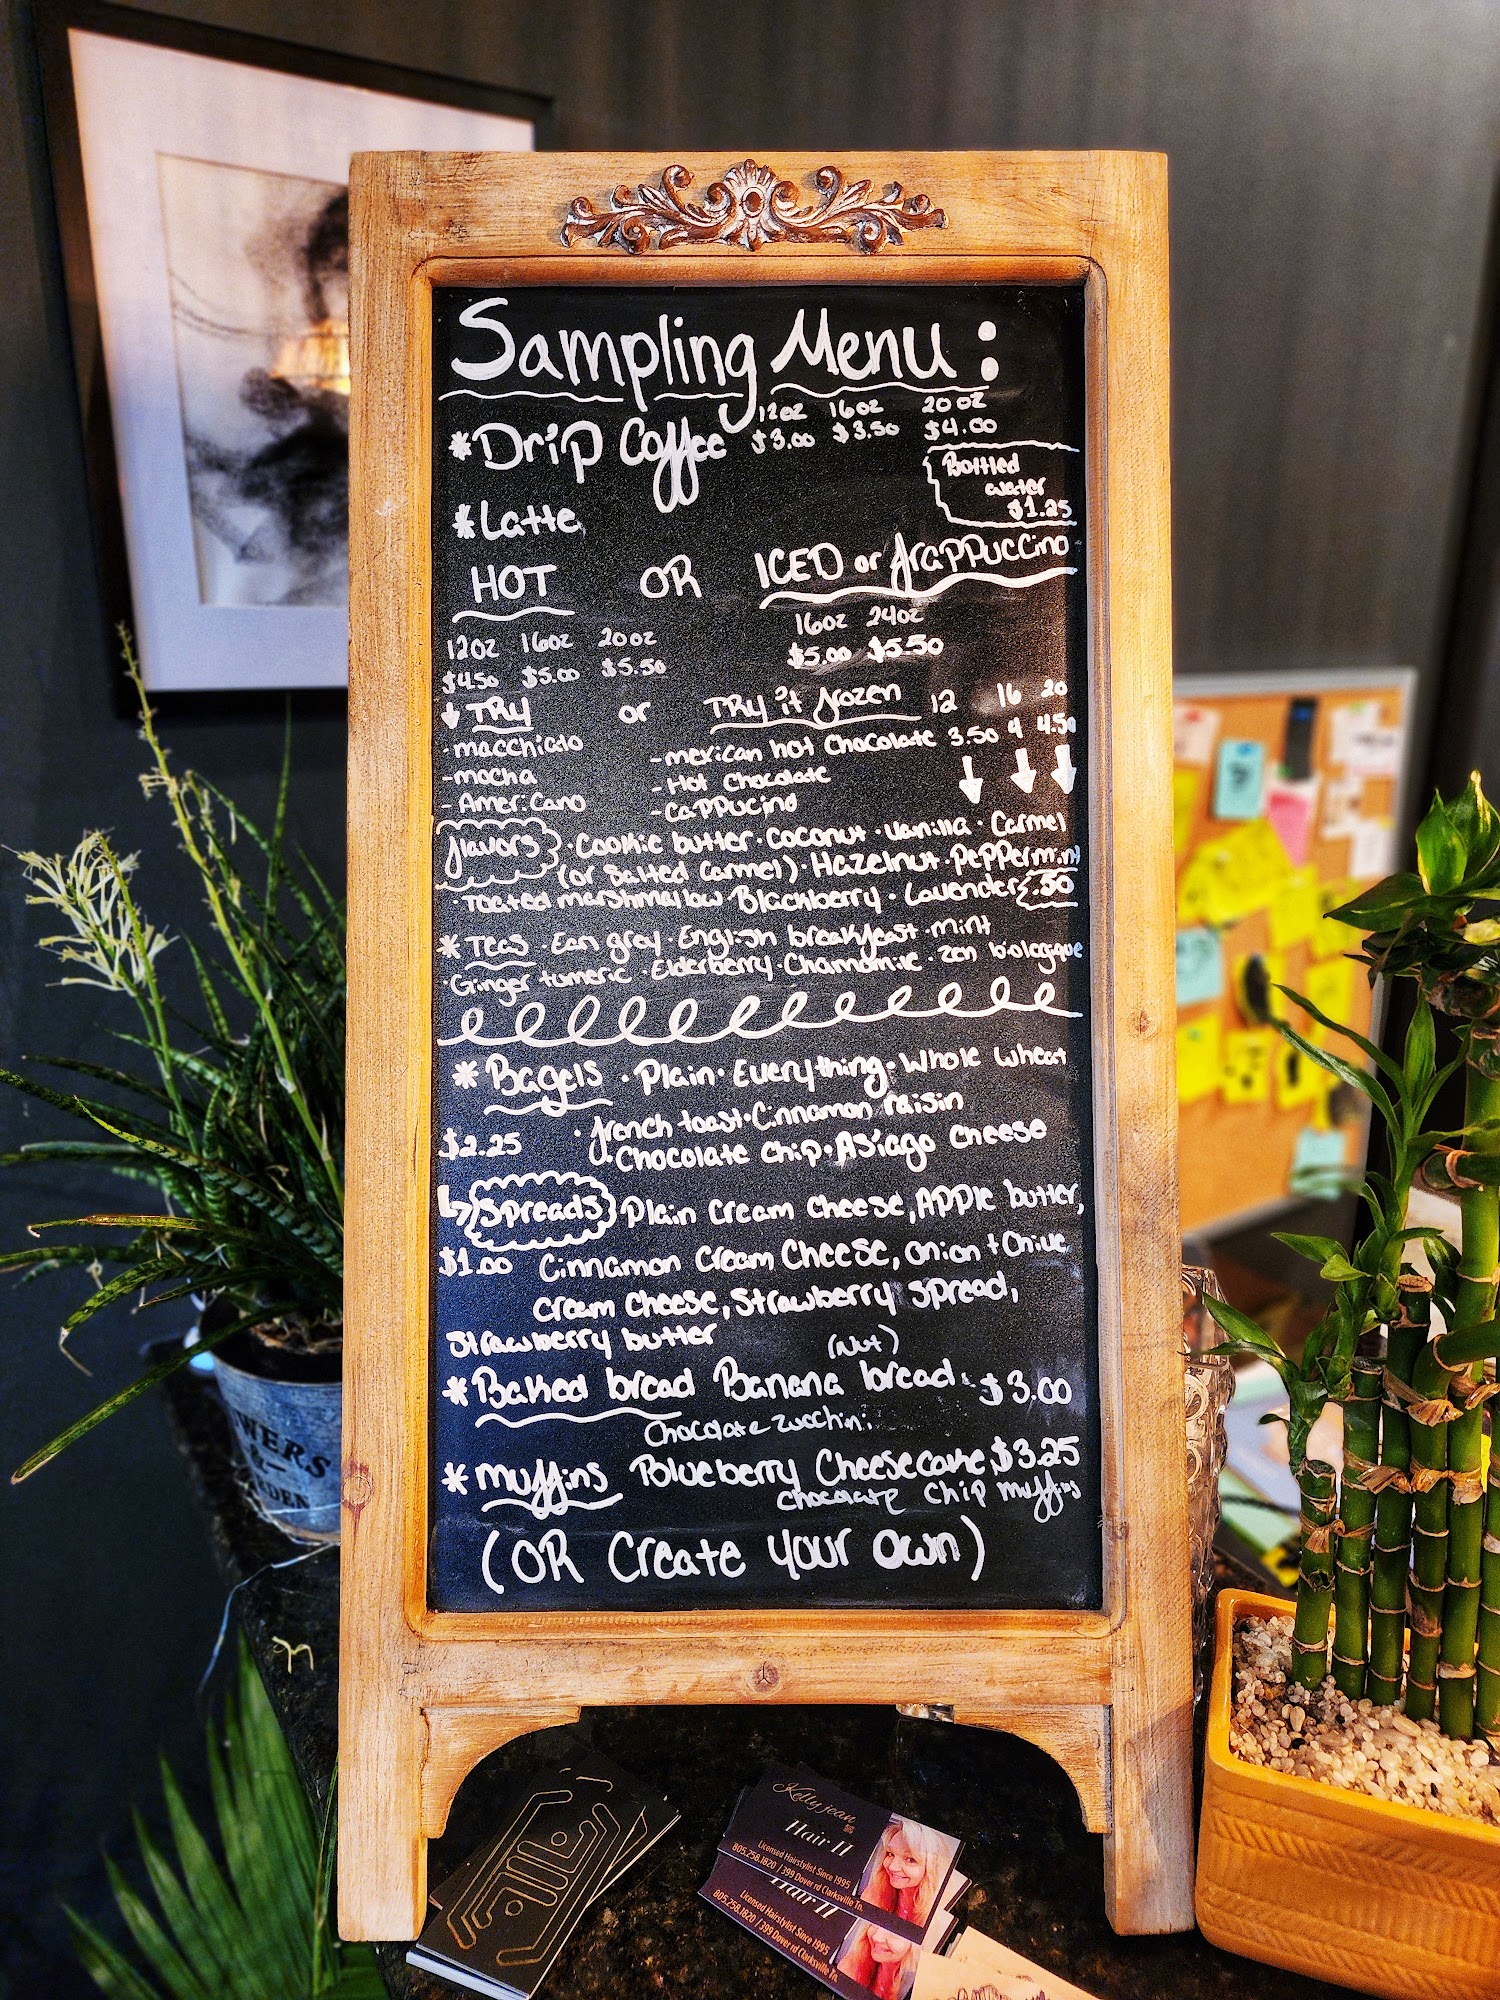 Sampling Menu:
*Drip Coffee
12oz 16oz 20oz
$3.00 $3.50 $4.00
Bottled
water
$1.25
*Latte
HOT OR ICED or frappuccino
12oz 16oz 20oz
$4.50 $5.00 $5.50
16oz 24oz
$5.00 $5.50
↓ TRY or TRY it frozen 12 16 20
-macchiato
-mocha
-Americano
-mexican hot chocolate 3.50 4 4.50
-Hot chocolate
-cappucino
flavors · Cookie butter · Coconut · Vanilla · Carmel
(or Salted Carmel) · Hazelnut · Peppermint
· Toasted marshmallow · Blackberry · Lavender .50
* Teas · Earl grey · English breakfeast · mint
· Ginger tumeric · Elderberry · Chamomile · zen biologique
* Bagels · Plain · Everything · Whole wheat
$2.25 · french toast · Cinnamon raisin
· Chocolate chip · Asiago cheese
Spreads Plain cream cheese, Apple butter,
$1.00 Cinnamon cream cheese, onion + Chive
cream cheese, strawberry spread,
strawberry butter
(Nut)
* Baked bread Banana bread · $3.00
Chocolate zucchini
* muffins Blueberry Cheesecake $3.25
chocolate chip muffins
(OR Create your own)
WERS
&
RDEN
Kelly jean
Hair II
Licensed Hairstylist Since 1995
805.258.1820 / 399 Dover rd Clarksville Tn.
Hair II
Licensed Hairstylist Since 1995
805.258.1820 / 399 Dover rd Clarksville Tn.